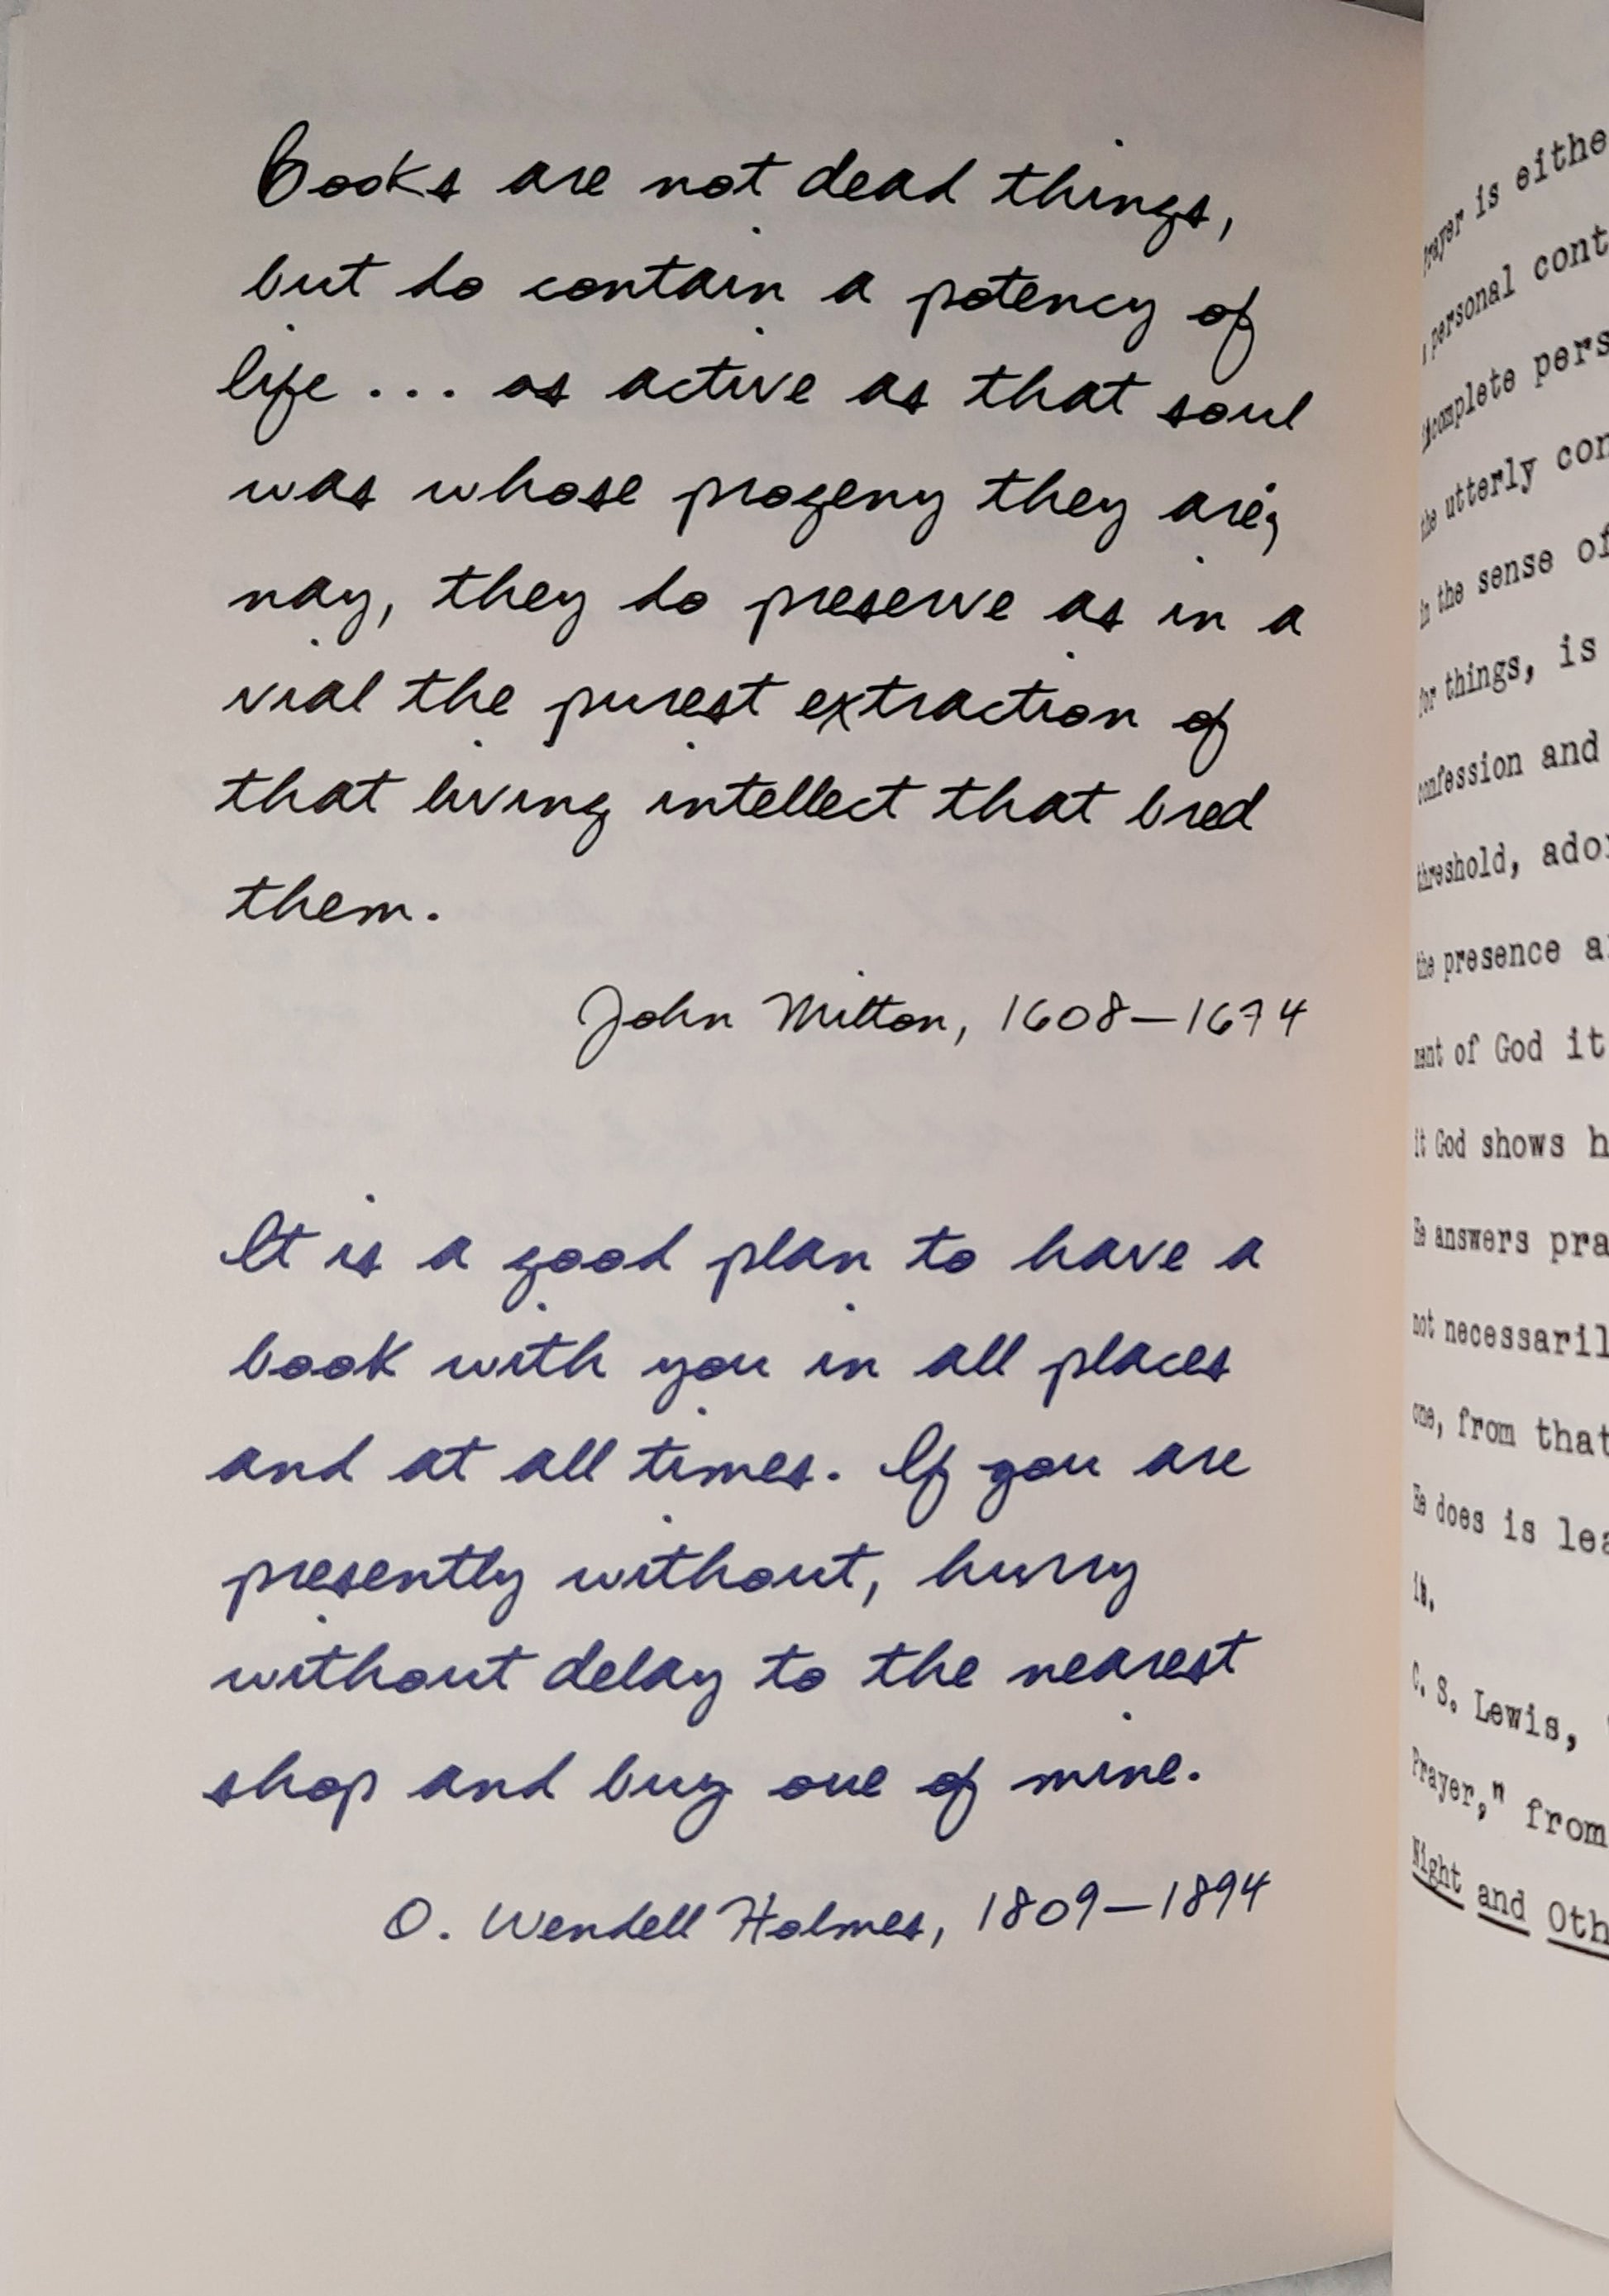 Books are not dead things,
but do contain a potency of
life ... as active as that soul
was whose progeny they are;
nay, they do preserve as in a
vial the purest extraction of
that living intellect that bred
them.
John Milton, 1608–1674
It is a good plan to have a
book with you in all places
and at all times. If you are
presently without, hurry
without delay to the nearest
shop and buy one of mine.
O. Wendell Holmes, 1809–1894
Prayer is
personal
utterly
in the sense of
for things, is
confession and
threshold,
the presence
of God it
it God shows
He answers
not
one, from that
He does is
it.
C. S. Lewis,
Prayer," from
Night and